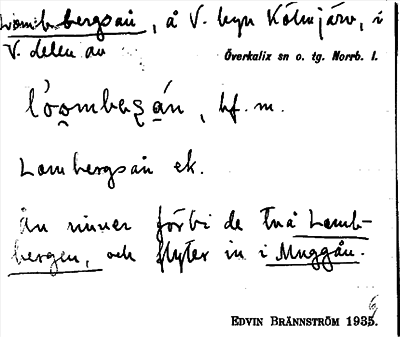 Lombbergsån, å V. byn Kölmjärv, i
V. delen av Överkalix sn o. tg. Norrb. l.
l'òo̯mberg̨án, bf. m.
Lombergsån ek.
Ån rinner förbi de två Lomb-
bergen, och flyter in i Muggån.
EDVIN BRÄNNSTRÖM 1935.